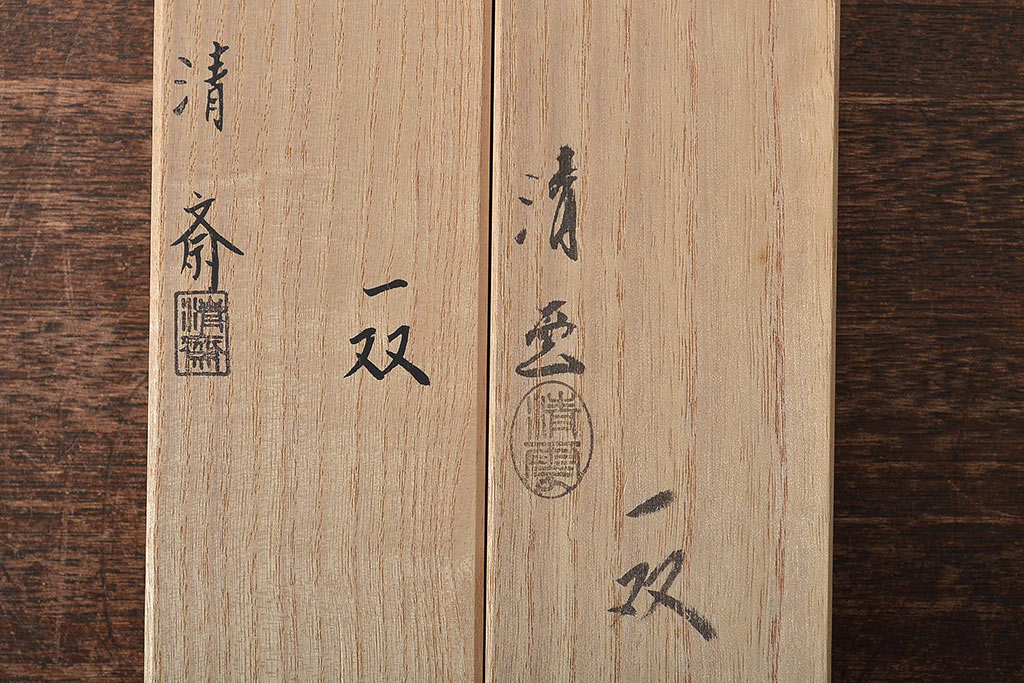 清雲
清雲
一双
清斎
清齋
一双